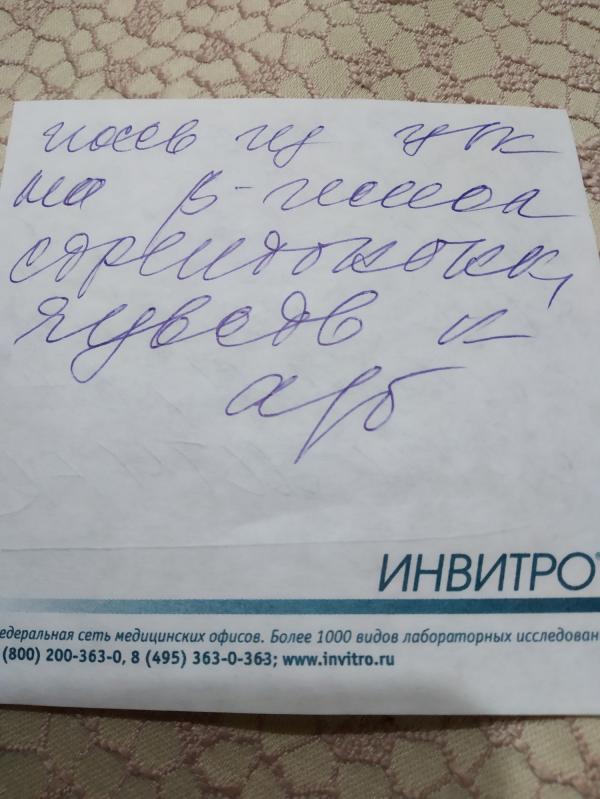 посев из цк
на β-гемол
стрептококк,
чувств к
а/б
ИНВИТРО®
едеральная сеть медицинских офисов. Более 1000 видов лабораторных исследован
(800) 200-363-0, 8 (495) 363-0-363; www.invitro.ru